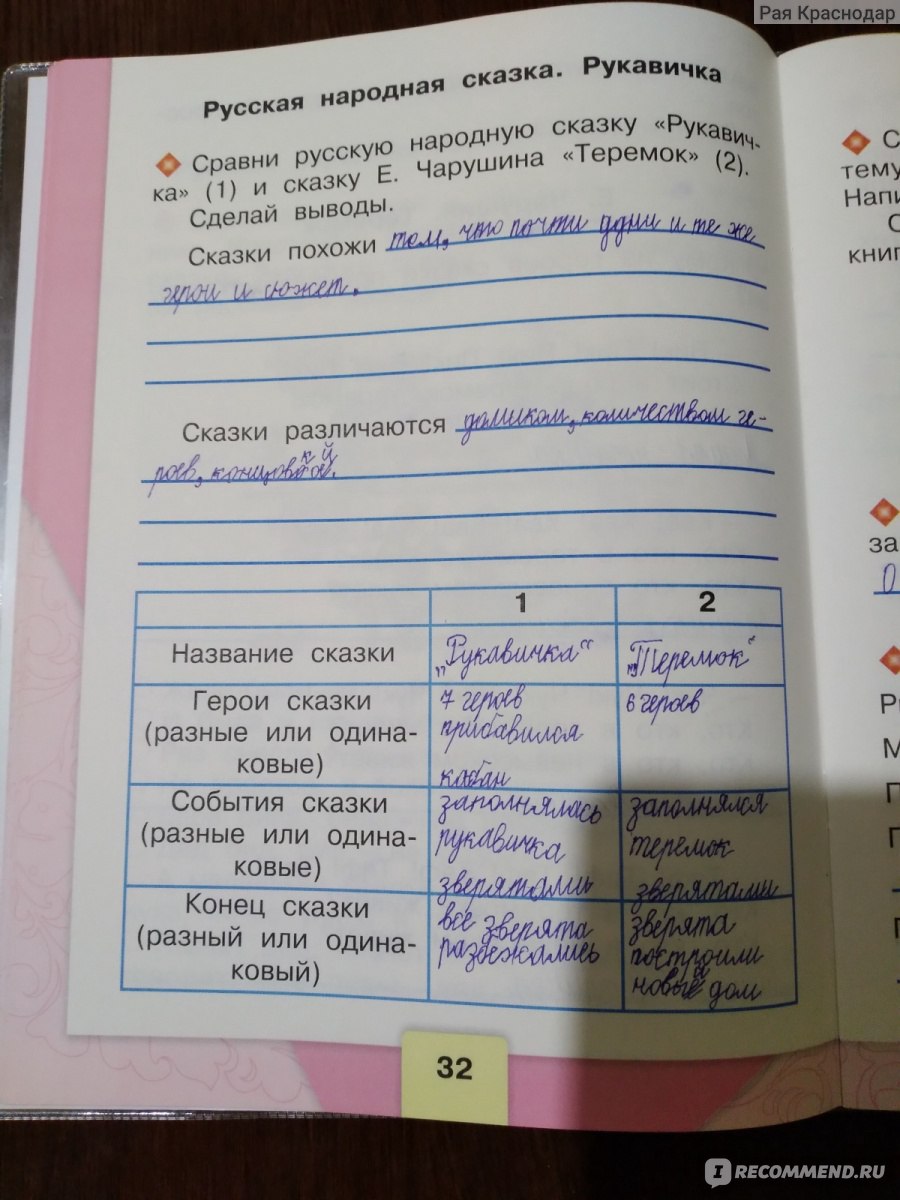 Рая Краснодар
Русская народная сказка. Рукавичка
Сравни русскую народную сказку «Рукавич-
ка» (1) и сказку Е. Чарушина «Теремок» (2).
Сделай выводы.
Сказки похожи тем, что почти одни и те же
герои и сюжет.
Сказки различаются домиком, количеством ге-
роев, концовкой.
1 2
Название сказки „Рукавичка“ „Теремок“
Герои сказки 7 героев 6 героев
(разные или одина- прибавился
ковые) кабан
События сказки заполнялась заполнялся
(разные или одина- рукавичка теремок
ковые) зверятами зверятами
Конец сказки все зверята зверята
(разный или одина- разбежались построили
ковый) новый дом
32
С
тему
Напи
С
книг
за
О
Р
М
П
П
П
IRECOMMEND.RU